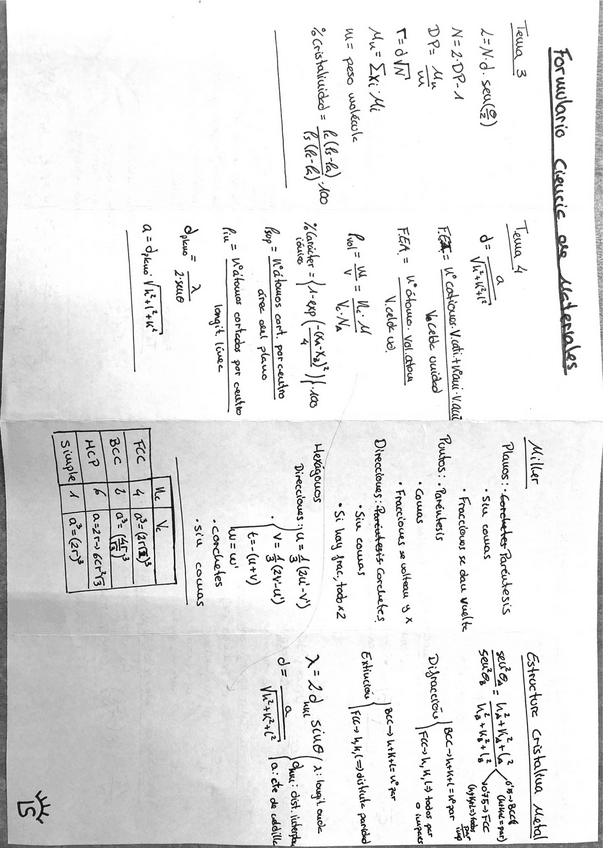 Formulario Ciencia de Materiales
Tema 3
L = N·d·sen(θ/2)
N = 2·DP-1
DP = Mn/m
r = d√N
Mn = Σxi·Mi
m = peso molécula
% Cristalinidad = ρc(ρs-ρa)/ρs(ρc-ρa) ·100
Tema 4
d = a/√h²+k²+l²
F.E.A = nº cationes·V.cati+nºani·V.ani/V.celda unidad
F.E.A = nº átomo. Vol.átomo/V.celda ud.
ρvol = m/V = nc·M/Vc·NA
% Carácter iónico = {1-exp(-(xA-xB)²/4)}·100
ρsup = nºátomos cort. por centro/área del plano
ρlin = nºátomos cortados por centro/longit. línea
dplano = λ/2·senθ
a = dplano·√h²+l²+k²
Miller
Planos: Paréntesis
· Sin comas
· Fracciones se dan vuelta
Puntos: · Paréntesis
· Comas
· Fracciones se voltean y x
Direcciones: Paréntesis Corchetes
· Sin comas
· Si hay frac, todo x2
Hexágonos
Direcciones: u = 1/3(2u'-v')
v = 1/3(2v'-u')
t = -(u+v)
w = w'
· corchetes
· sin comas
nc Vc
FCC 4 a³=(2r√2)³
BCC 2 a³=(4r/√3)³
HCP 6 a=2r→6cr²√3
Simple 1 a³=(2r)³
Estructura Cristalina Metal
sen²θA/sen²θB = hA²+kA²+lA²/hB²+kB²+lB²
0'5→BCC
(h+k+l=par)
0'75→FCC
(h,k,l=> todos par imp
Difracción
BCC→h+k+l=nº par
FCC→h,k,l=> todos par o impares
Extinción
BCC→h+k+l=nº par
FCC→h,k,l=> distinta paridad
λ = 2dhkl sinθ
λ: longit onda
dhkl: dist interpla
a: cte de celdilla
d = a/√h²+k²+l²